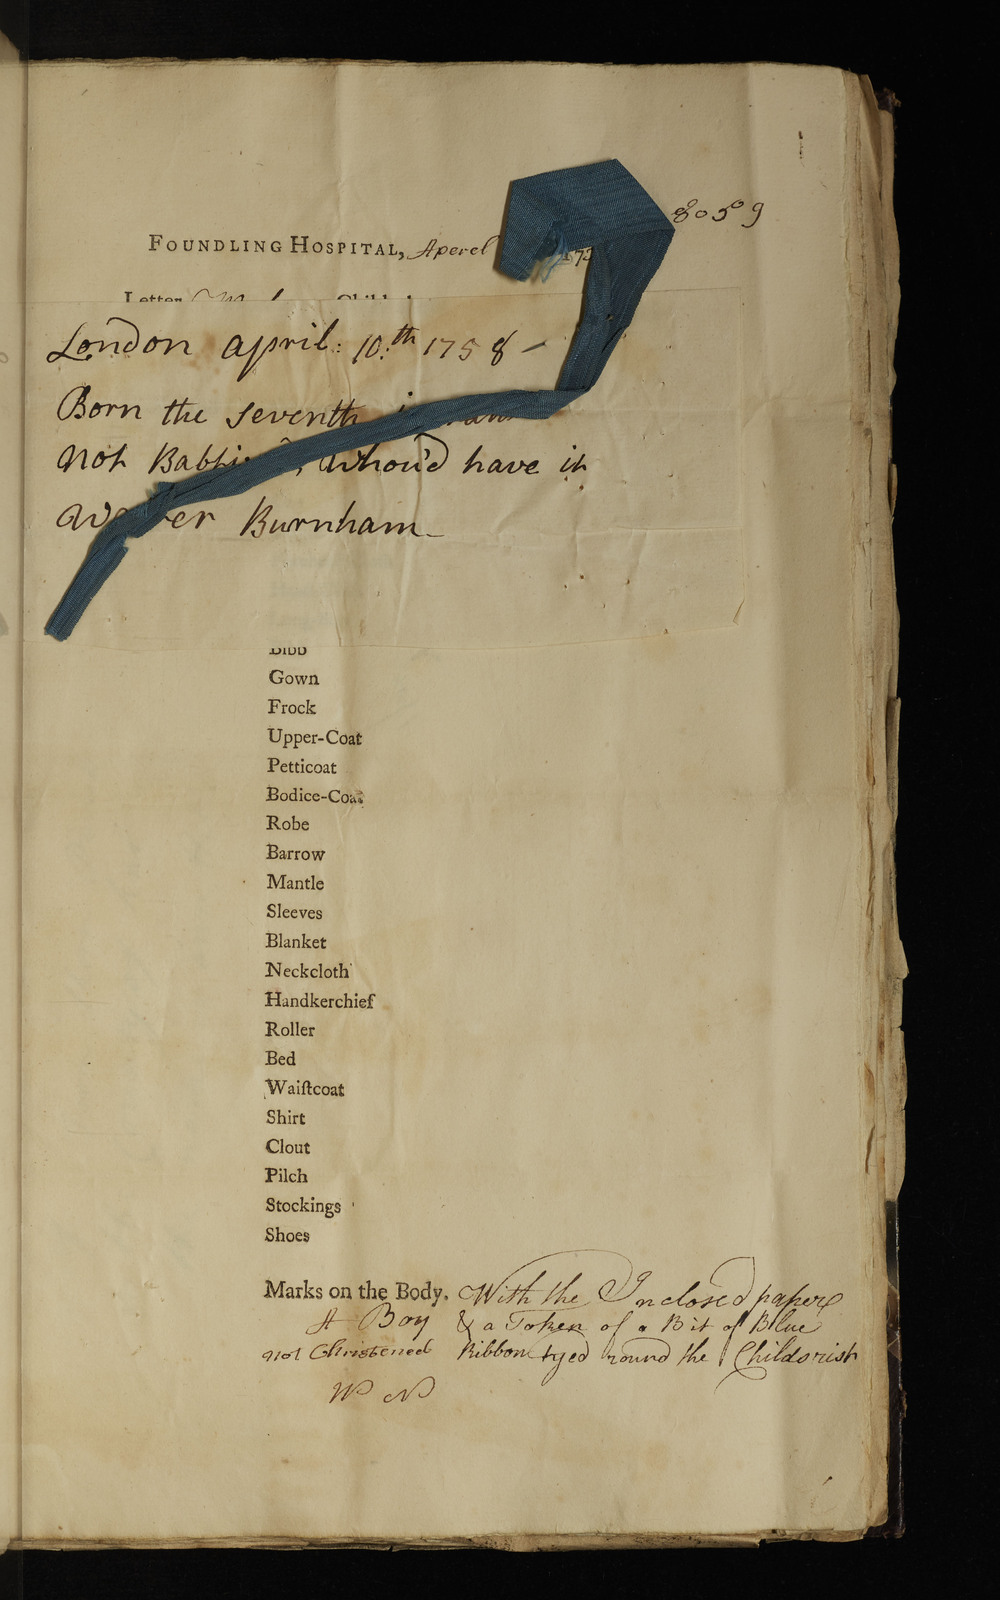 8059
FOUNDLING HOSPITAL, Aperel
Letter
London april: 10:th 1758 -
Born the seventh
Not , Whou'd have it
Burnham
Bibb
Gown
Frock
Upper-Coat
Petticoat
Bodice-Coat
Robe
Barrow
Mantle
Sleeves
Blanket
Neckcloth
Handkerchief
Roller
Bed
Waiſtcoat
Shirt
Clout
Pilch
Stockings
Shoes
Marks on the Body. With the Inclosed paper
A Boy & a Token of a Bit of Blue
not Christened Ribbon tyed round the Childs rist
W N